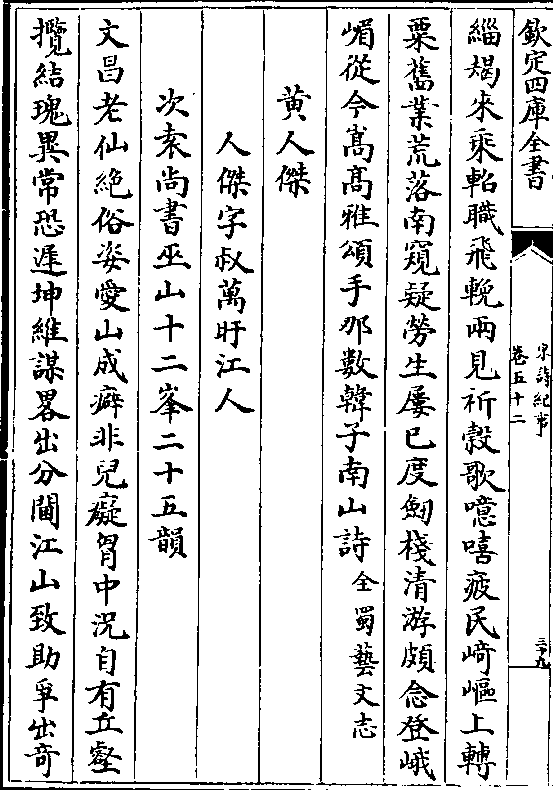 欽定四庫全書
宋詩紀事
卷五十二
三十九
緇朅来乗軺職飛輓兩見祈穀歌噫嘻疲民﨑嶇上轉
粟舊業荒落南窺疑勞生屢已度劒棧清游頗念登峨
嵋從今嵩髙雅頌手那數韓子南山詩全蜀藝文志
黄人傑
人傑字叔萬盱江人
次袁尚書巫山十二峯二十五韻
文昌老仙絶俗姿愛山成癖非兒癡胷中況自有丘壑
攬結瑰異常恐遲坤維謀畧出分閫江山致助爭出竒